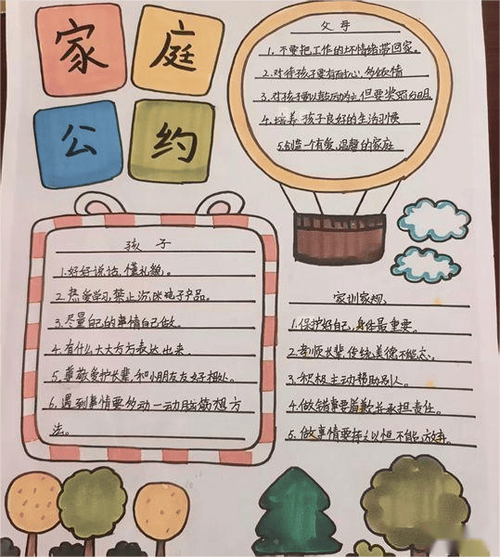 家庭
公约
父母
1.不要把工作的坏情绪带回家。
2.对待孩子要有耐心,多饮情
3.对孩子要以鼓励为主,但要奖罚分明
4.培养孩子良好的生活习惯
5.创造一个有爱,温馨的家庭
孩子
1.好好说话,懂礼貌。
2.热爱学习,禁止沉迷电子产品。
3.尽量自己的事情自己做。
4.有什么大大方方表达出来。
5.尊敬爱护长辈,和小朋友友好相处。
6.遇到事情要多动一动脑筋想方
法。
家训家规
1.保护好自己,身体最重要。
2.孝顺长辈,传统美德不能忘。
3.积极主动帮助别人。
4.做错事要道歉并承担责任。
5.做事情要持之以恒不能放弃。